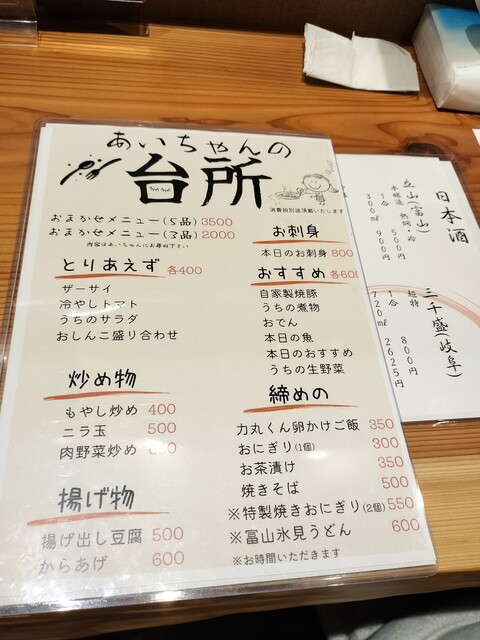 あいちゃんの
台所
消費税別途頂戴いたします
おまかせメニュー(5品) 3500
おまかせメニュー(3品) 2000
内容はあいちゃんにお尋ね下さい
とりあえず 各400
ザーサイ
冷やしトマト
うちのサラダ
おしんこ盛り合わせ
炒め物
もやし炒め 400
ニラ玉 500
肉野菜炒め
揚げ物
揚げ出し豆腐 500
からあげ 600
お刺身
本日のお刺身 800
おすすめ 各600
自家製焼豚
うちの煮物
おでん
本日の魚
本日のおすすめ
うちの生野菜
締めの
力丸くん卵かけご飯 350
おにぎり(1個) 300
お茶漬け 350
焼きそば 500
※特製焼きおにぎり(2個) 550
※富山氷見うどん 600
※お時間いただきます
日本酒
立山(富山)
本醸造 熱燗・冷
1合 500円
300ml 900円
三千盛(岐阜)
超特
1合 800円
720ml 2625円